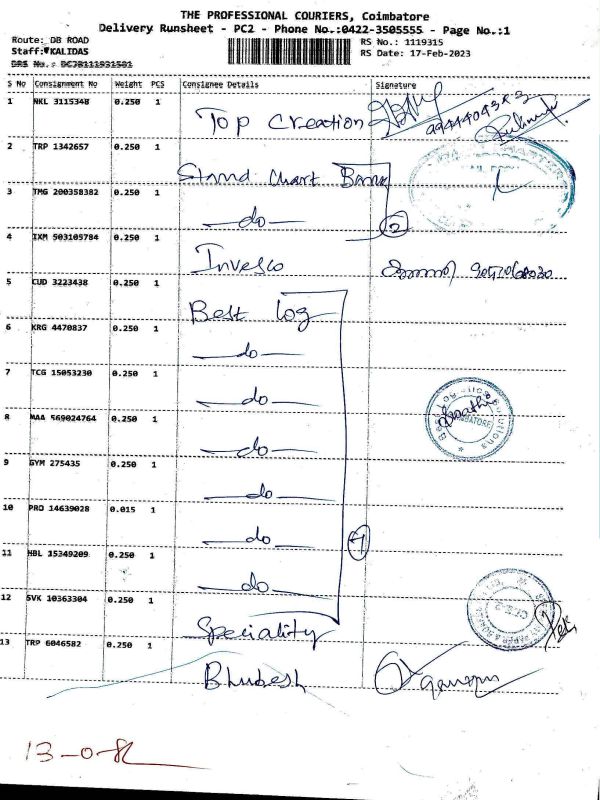 THE PROFESSIONAL COURIERS, Coimbatore
Delivery Runsheet - PC2 - Phone No.:0422-3505555 - Page No.:1
Route: DB ROAD
RS No.: 1119315
Staff: KALIDAS
RS Date: 17-Feb-2023
S No Consignment No Weight PCS Consignee Details Signature
1 NKL 3115348 0.250 1 Top Creation
2 TRP 1342657 0.250 1 Stand Chart Bank
3 TMG 200358382 0.250 1 do
2
4 IXM 503105784 0.250 1 Invesco
5 CUD 3223438 0.250 1 Best log
6 KRG 4470837 0.250 1 do
7 TCG 15053230 0.250 1 do
8 MAA 569024764 0.250 1 do
9 GYM 275435 0.250 1 do
10 PRO 14639028 0.015 1 do
11 HBL 15349209 0.250 1 do
12 SVK 10363304 0.250 1 Speciality
13 TRP 6046582 0.250 1 Bhubesh